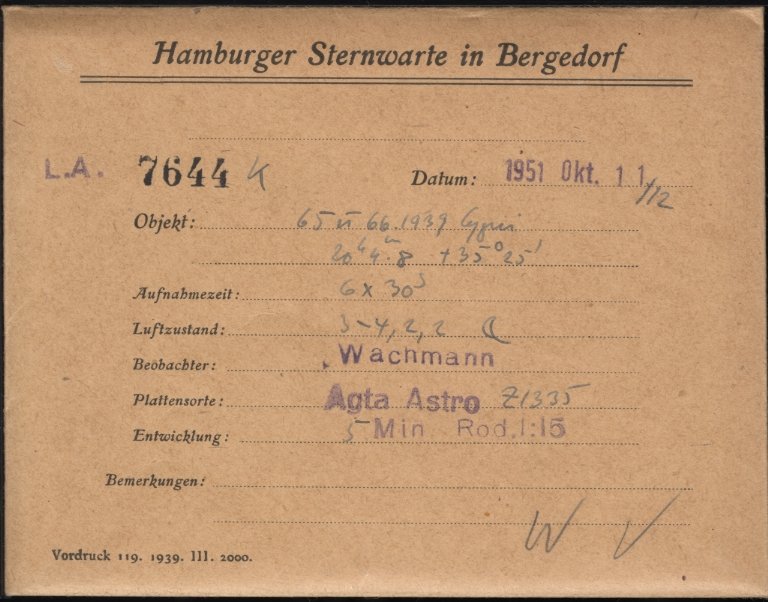 Hamburger Sternwarte in Bergedorf
L.A. 7644 K Datum: 1951 Okt. 11/12
Objekt: 65 u 66.1939 Cygni
20ʰ4ᵐ.8 +35°25'
Aufnahmezeit: 6 x 30ˢ
Luftzustand: 3-4, 2, 2
Beobachter: Wachmann
Plattensorte: Agfa Astro Z1335
Entwicklung: 5 Min Rod. 1:15
Bemerkungen:
W V
Vordruck 119. 1939. III. 2000.